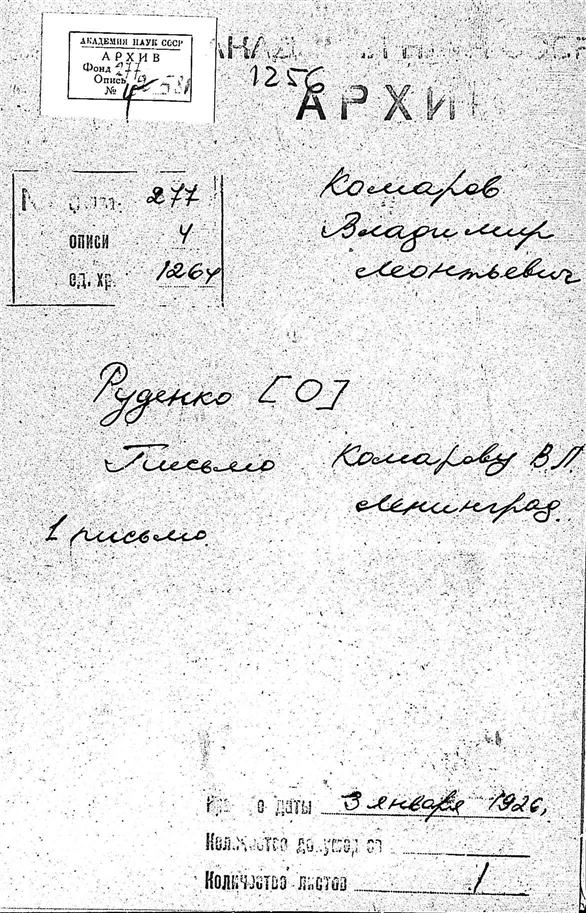 АКАДЕМИЯ НАУК СССР
АРХИВ
Фонд 277
Опись 4
№
1256
АРХИ
277
описи 4
ед. хр. 1264
Комаров
Владимир
Леонтьевич
Руденко [О]
Письмо Комарову В Л
Ленинград.
1 письмо.
даты 3 января 1926,
Количество
Количество листов 1